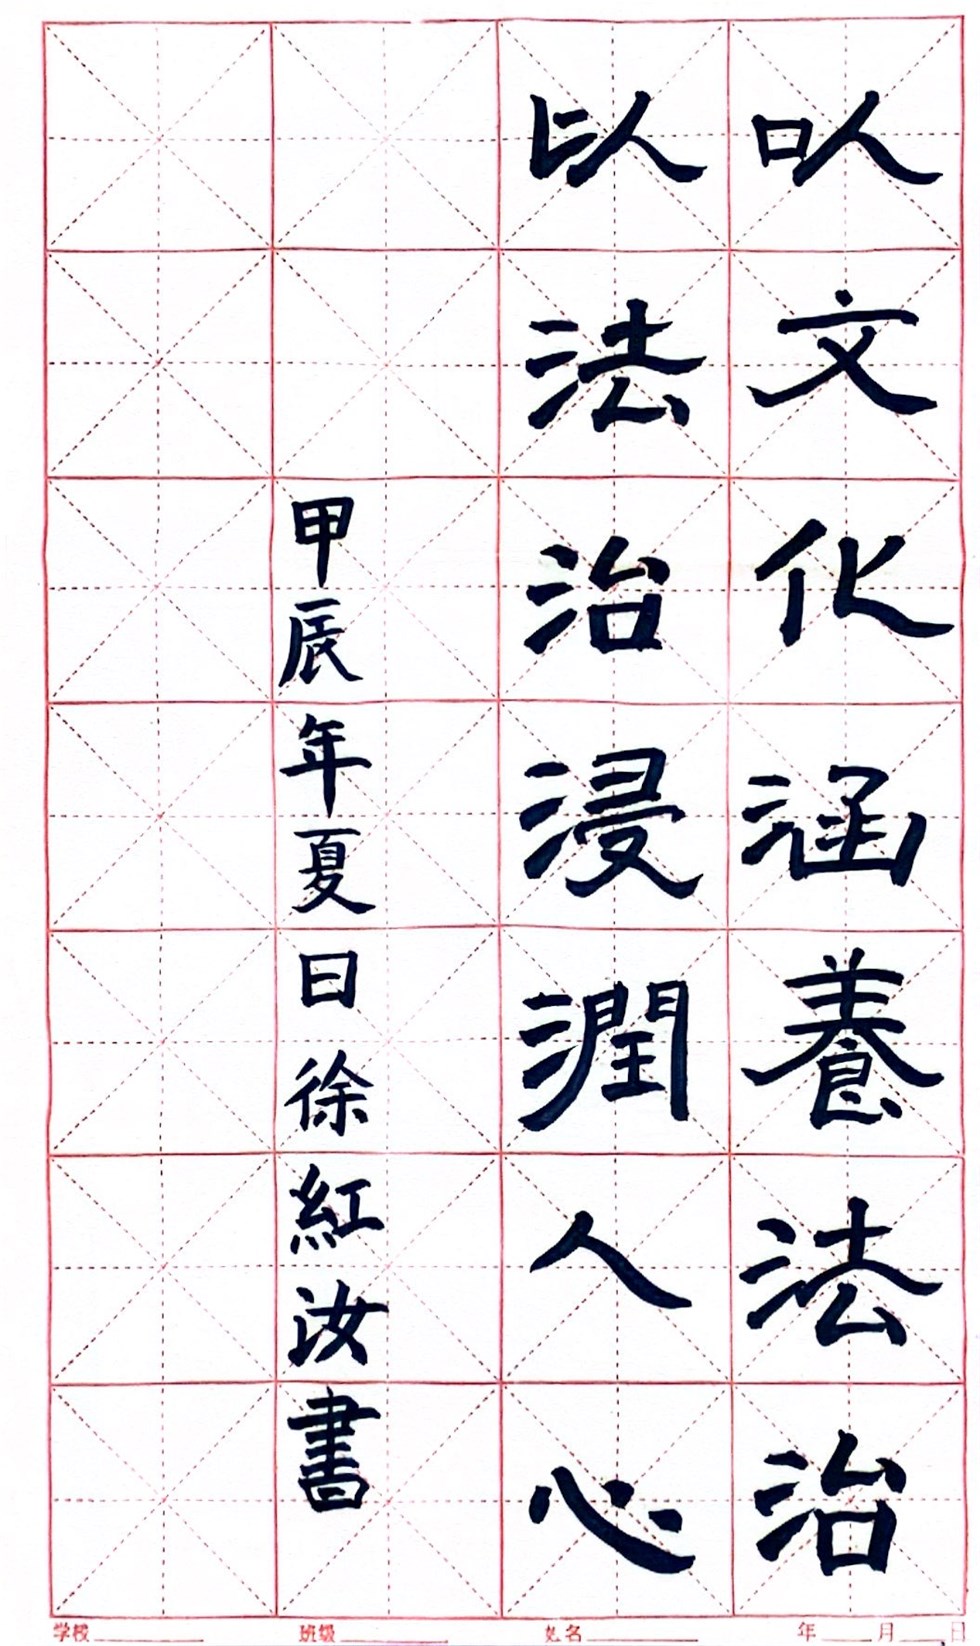 以文化涵養法治
以法治浸潤人心
甲辰年夏日徐紅汝書
学校 班级 姓名 年 月 日